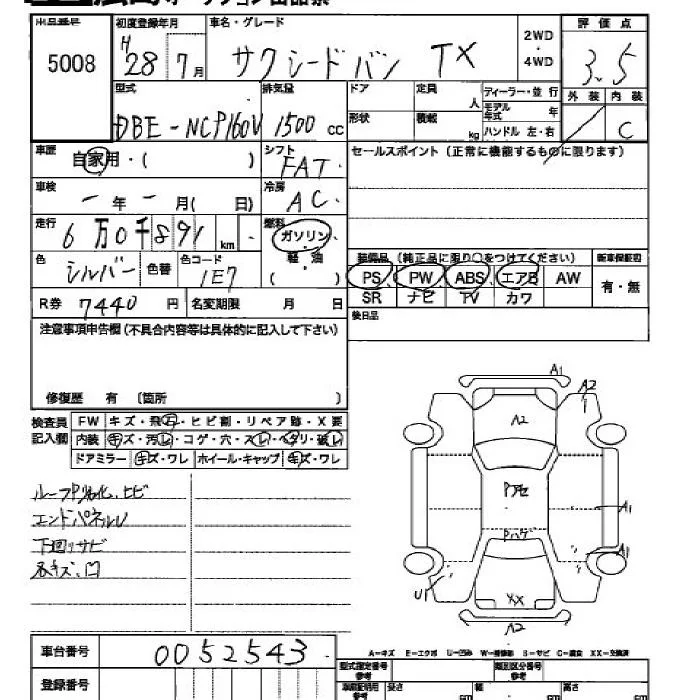 出品番号 初度登録年月 車名・グレード 評価点
5008 H28年7月 サクシードバン TX 2WD・4WD 3.5
型式 排気量 ドア 定員 ディーラー・並行 外装 内装
DBE-NCP160V 1500cc 人 モデル年式 年 C
形状 積載 kg ハンドル 左・右
車歴 自家用・( ) シフト FAT セールスポイント (正常に機能するものに限ります)
車検 ー年ー月( 日) 冷房 AC
走行 6万0千891km 燃料 ガソリン・軽油 ( )
色 シルバー 色替 色コード 1E7 装備品 (純正品に限り○をつけてください) 新車保証書
PS PW ABS エアB AW 有・無
R券 7440円 名変期限 月 日 SR ナビ TV カワ
注意事項申告欄 (不具合内容等は具体的に記入して下さい) 後日品
修復歴 有 〔箇所 〕
検査員記入欄 FW キズ・飛石・ヒビ割・リペア跡・X要
内装 キズ・汚レ・コゲ・穴・スレ・ヘタリ・破レ
ドアミラー キズ・ワレ ホイール・キャップ キズ・ワレ
A1 A2
A2
ルーフP劣化、ヒビ Pアセ
エンドパネルU A1
下回りサビ Pハゲ
各キズ、凹 A1
U1 XX
A2
車台番号 0052543 A-キズ E-エクボ U-凹み W-補修跡 S-サビ C-腐食 XX-交換済
登録番号 型式指定番号 参考 類別区分番号 参考
長さ cm 幅 cm 高さ cm